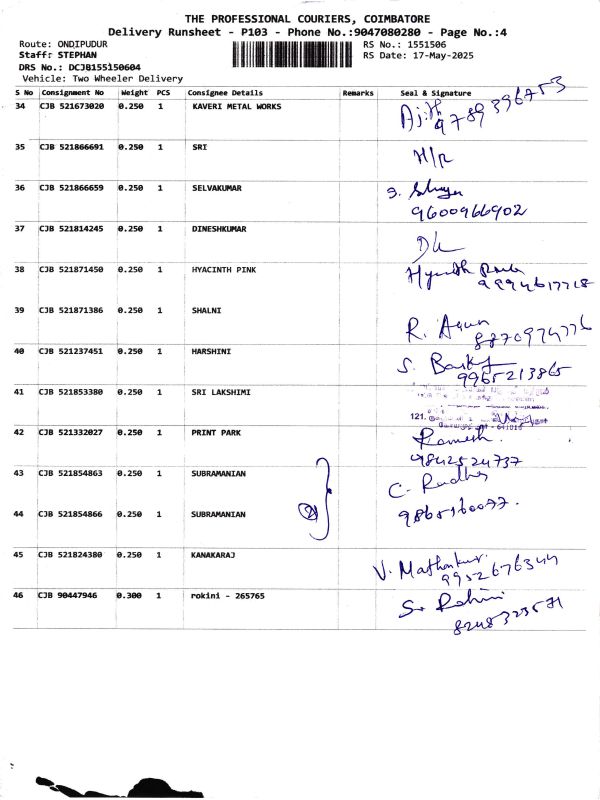 THE PROFESSIONAL COURIERS, COIMBATORE
Delivery Runsheet - P103 - Phone No.:9047080280 - Page No.:4
Route: ONDIPUDUR RS No.: 1551506
Staff: STEPHAN RS Date: 17-May-2025
DRS No.: DCJB155150604
Vehicle: Two Wheeler Delivery
S No Consignment No Weight PCS Consignee Details Remarks Seal & Signature
34 CJB 521673020 0.250 1 KAVERI METAL WORKS Ajith
9789396753
35 CJB 521866691 0.250 1 SRI H/R
36 CJB 521866659 0.250 1 SELVAKUMAR S.
9600966902
37 CJB 521814245 0.250 1 DINESHKUMAR
38 CJB 521871450 0.250 1 HYACINTH PINK Hyacinth
39 CJB 521871386 0.250 1 SHALNI R. Arun
8870974776
40 CJB 521237451 0.250 1 HARSHINI S.
9965213865
41 CJB 521853380 0.250 1 SRI LAKSHIMI
121.
42 CJB 521332027 0.250 1 PRINT PARK Ramesh
9842524737
43 CJB 521854863 0.250 1 SUBRAMANIAN C. Radha
44 CJB 521854866 0.250 1 SUBRAMANIAN (2)
45 CJB 521824380 0.250 1 KANAKARAJ V.
9952676344
46 CJB 90447946 0.300 1 rokini - 265765 S. Rohini